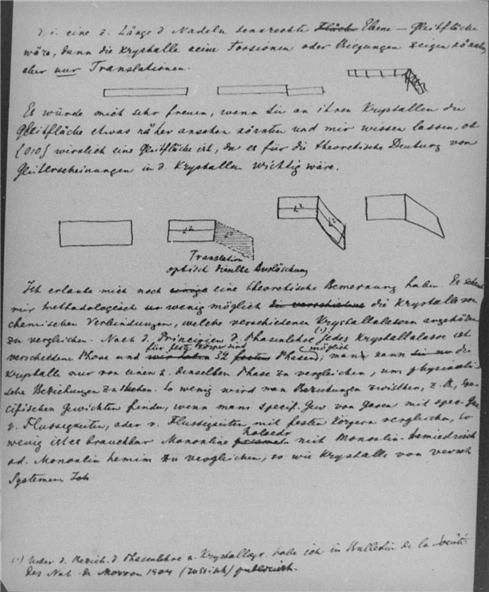 d. i. eine z. Länge d Nadeln senkrechte Ebene — Gleitfläche
wäre, dann die Krystalle keine Torsionen oder Biegungen zeigen können
aber nur Translationen.
Es würde mich sehr freuen, wenn Sie an ihren Krystallen die
Gleitfläche etwas näher ansehen könnten und mir wissen lassen, ob
{010} wirklich eine Gleitfläche ist, da es für die theoretische Deutung von
Gleiterscheinungen in d. Krystallen wichtig wäre.
Translation
optisch dieselbe Auslöschung
Ich erlaube mich noch eine theoretische Bemerkung haben. Es scheint
mir methodologisch wenig möglich die Krystalle von
chemischen Verbindungen, welche verschiedenen Krystallklassen angehören
zu vergleichen. Nach d. Principien d. Phasenlehre jedes Krystallklasse ist
(1)
verschiedene Phase und 32 Phasen, man kann nur die
möglich
Krystalle nur von einen u. denselben Phase zu vergleichen, um physikali-
sche Beziehungen zu suchen. So wenig wird man Beziehungen zwischen, z. B., spe-
cifischen Gewichten finden, wenn man specif. Gew von Gasen mit spec. Gew
v. Flussigkeiten, oder v. Flussigkeiten mit festen Körpern vergleichen, so
wenig ist es brauchbar Monoklin holoedr mit Monoklin-hemiedrisch
od. Monoklin hemim zu vergleichen, so wie Krystalle von versch
Systemen. Ich
(1) Ueber d. Bezieh. d Phasenlehre u. Krystallogr. habe ich in Bulletin de la Société
des Nat. de Moscou 1904 (russisch) publicirt.